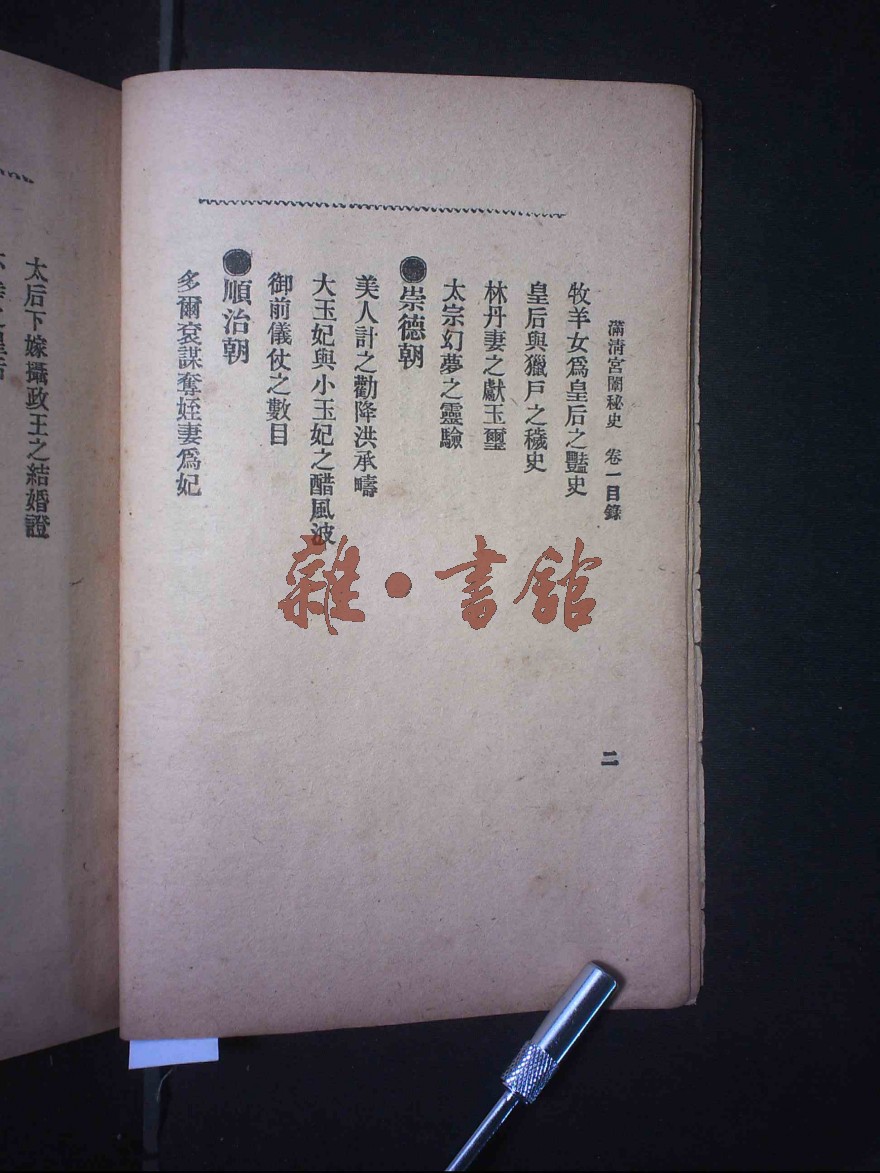 滿清宮闈秘史 卷一目錄
二
牧羊女爲皇后之豔史
皇后與獵戶之穢史
林丹妻之獻玉璽
太宗幻夢之靈驗
●崇德朝
美人計之勸降洪承疇
大玉妃與小玉妃之醋風波
御前儀仗之數目
●順治朝
多爾袞謀奪姪妻爲妃
太后下嫁攝政王之結婚證
雜·書館